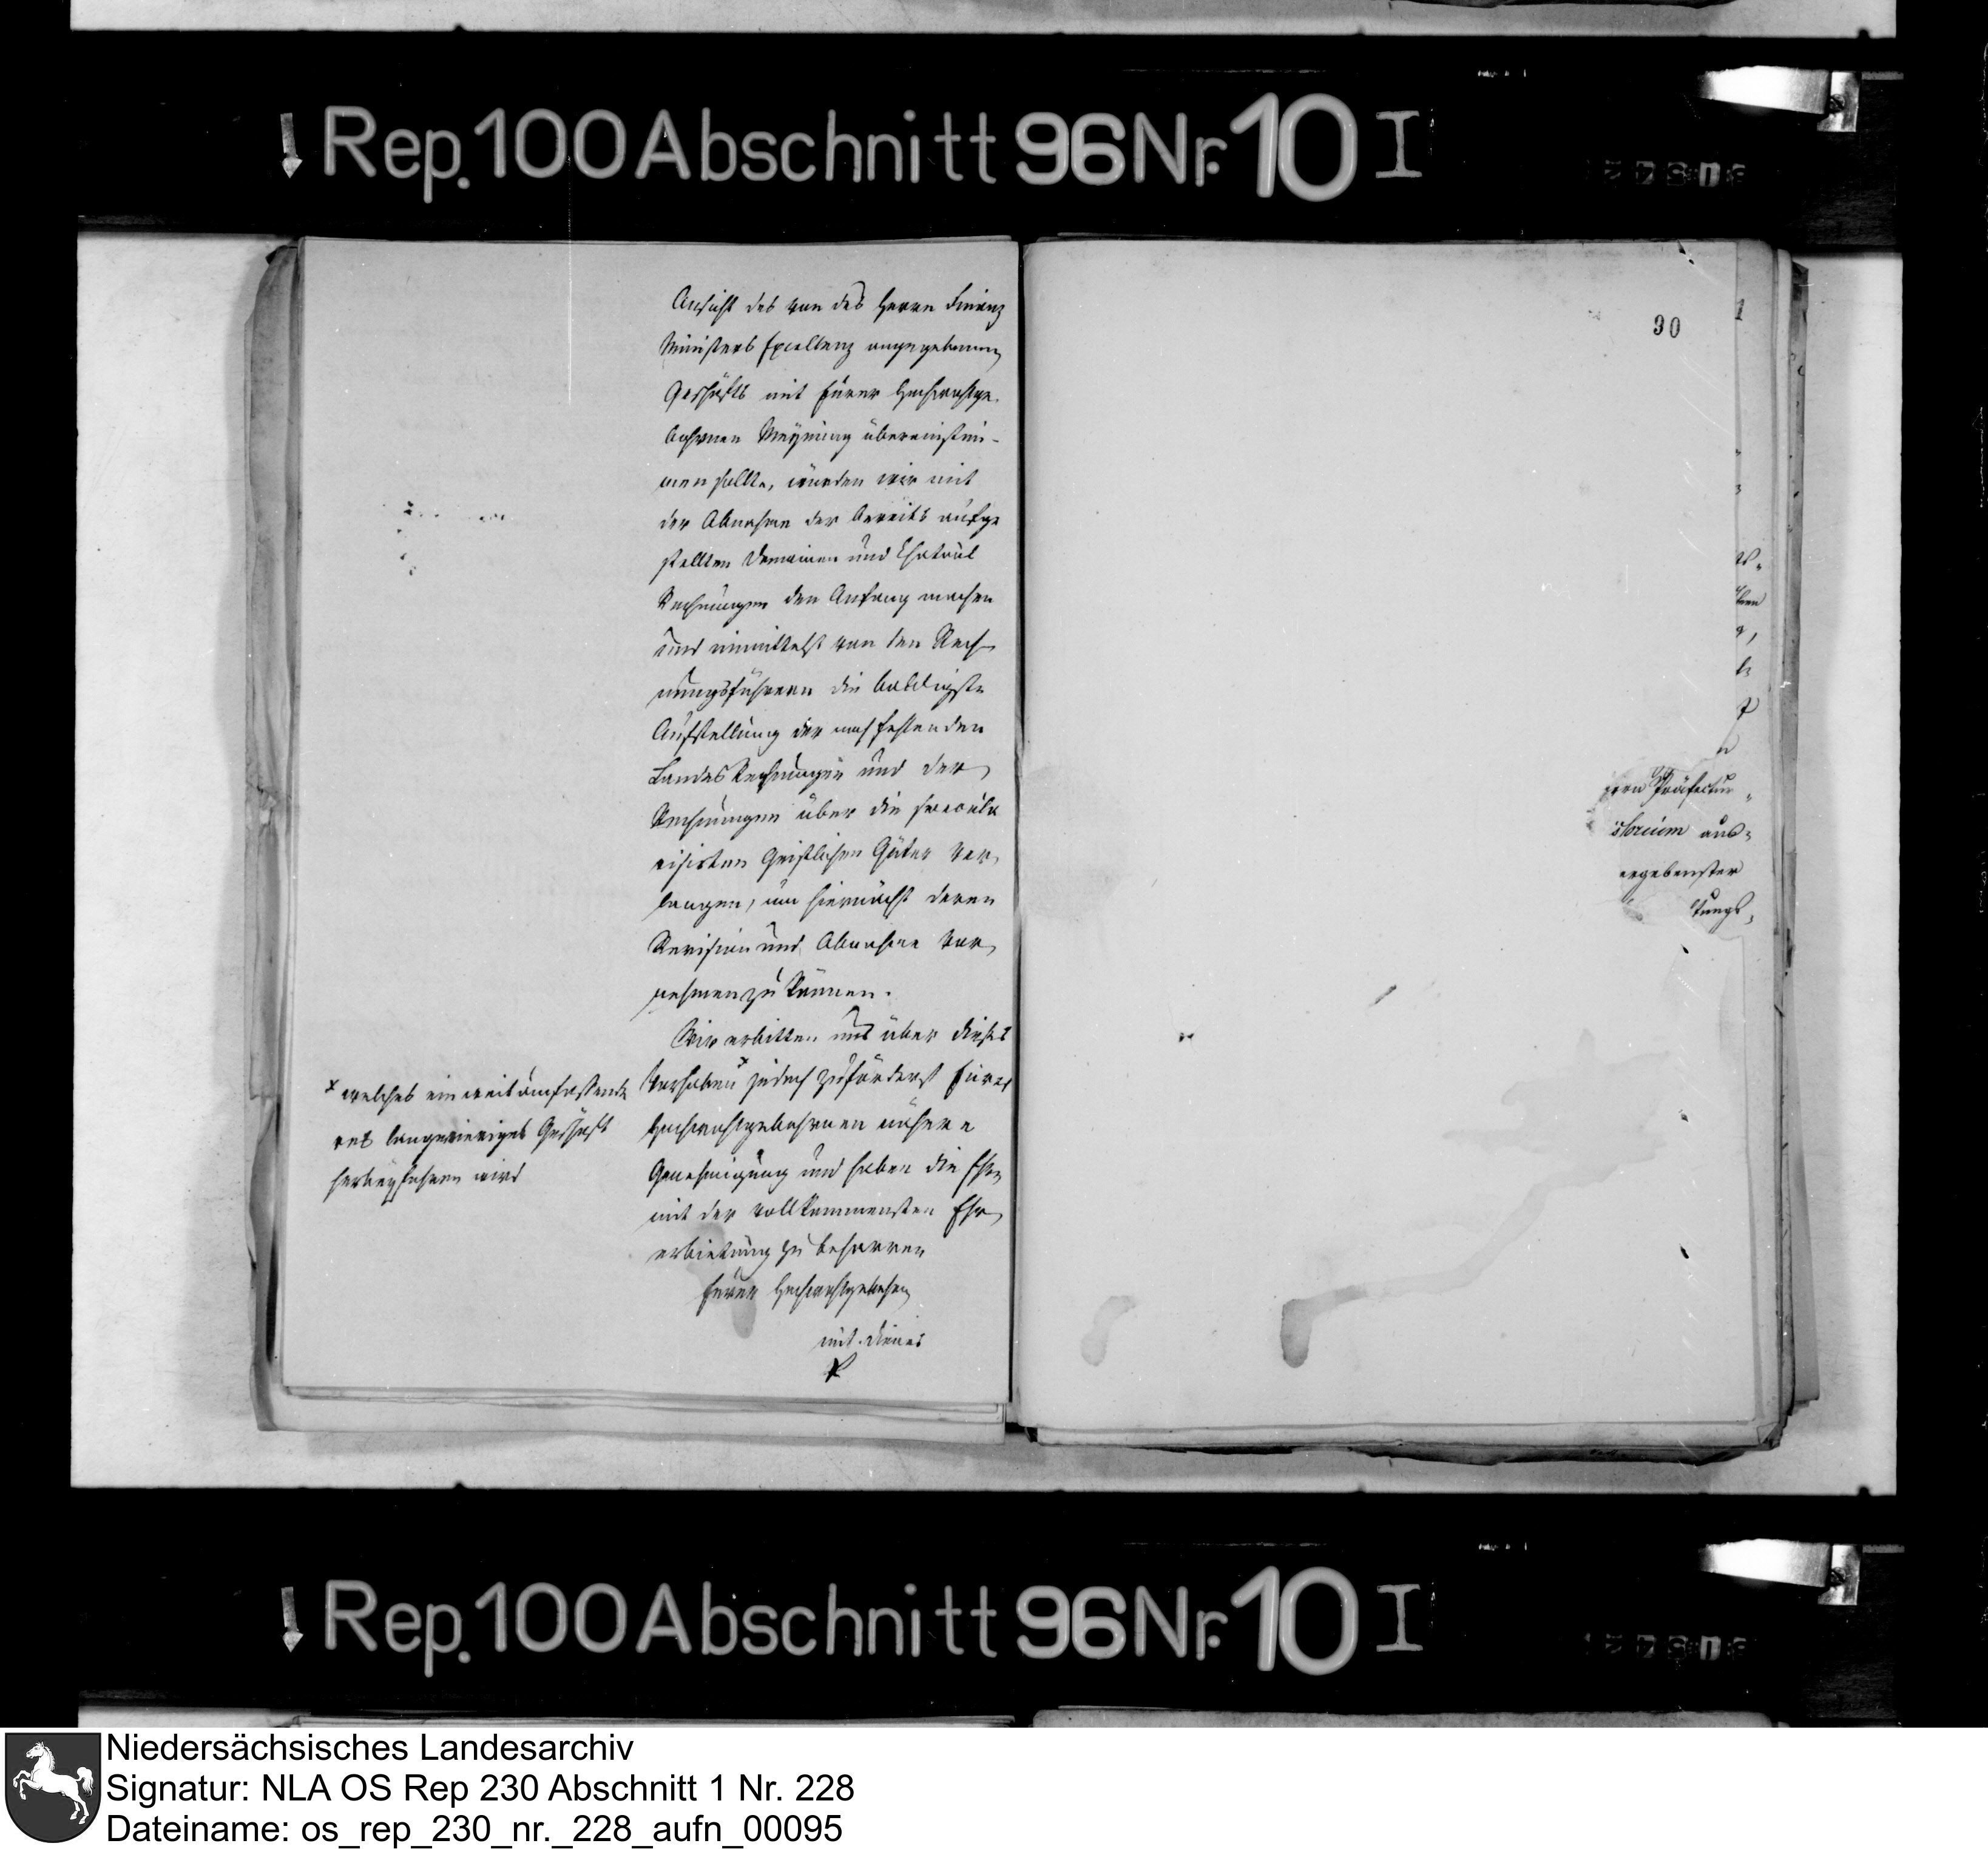 Rep. 100 Abschnitt 96 Nr. 10 I
Ansicht des von des Herrn Finanz
Ministers Excellenz angegebenen
Geschäfts mit Eurer Hochwohlge
bohrnen Meynung übereinstim-
men sollte, würden wir mit
der Abnahme der bereits aufge
stellten Domainen und Chatoul
Rechnungen den Anfang machen
und inmittelst von den Rech
nungsführern die baldigste
Aufstellung der noch fehlenden
Landes Rechnungen und der
Rechnungen über die seecula
risirten Geistlichen Güter ver
langen, um hiernächst deren
Revision und Abnahme vor
nehmen zu können.
Wir erbitten uns über dieses
Vorhaben x jedoch zuförderst Eurer
Hochwohlgebohrnen nähere
Genehmigung und haben die Ehre
mit der vollkommensten Ehr
erbietung zu beharren
Eurer Hochwohlgebohrn
x welches ein weit umfassende
langwieriges Geschäft
herbeyführen wird
30
Präfectur
aus-
ergebenster
tungs
Rep. 100 Abschnitt 96 Nr. 10 I
Niedersächsisches Landesarchiv
Signatur: NLA OS Rep 230 Abschnitt 1 Nr. 228
Dateiname: os_rep_230_nr._228_aufn_00095